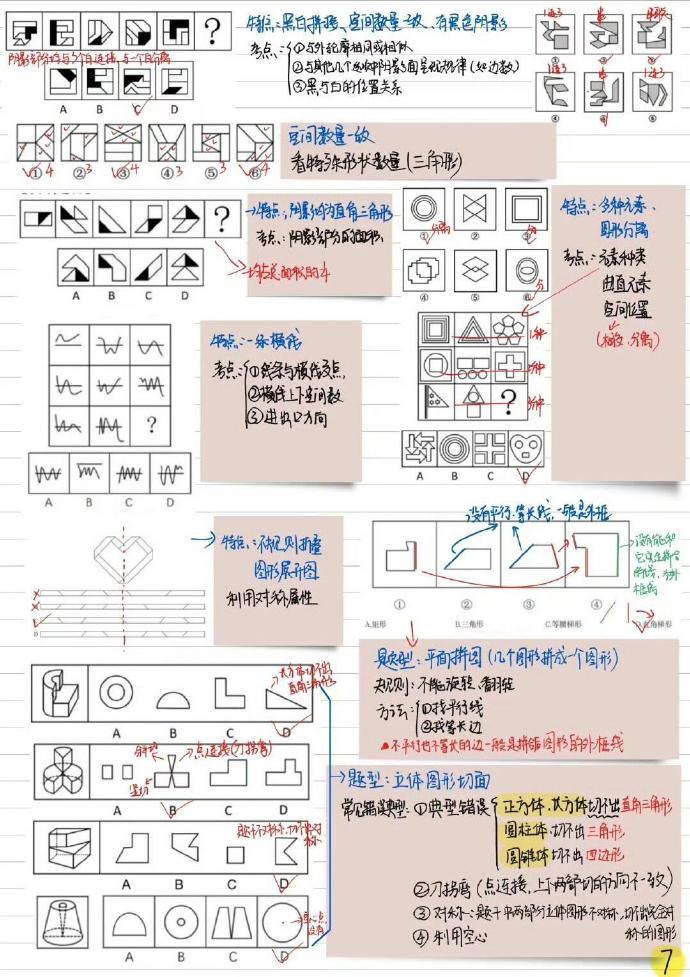 特点:黑白拼接、空间数量一致、有黑色阴影
考点:①与外轮廓相同或相似
②与其他几个选项阴影面呈现规律(如边数)
③黑与白的位置关系
A B C D
① ② ③
④ ⑤ ⑥
① ② ③ ④ ⑤ ⑥
4 3 4 3 3 4
空间数量一致
看特殊形状数量(三角形)
?
特点:阴影均为直角三角形
考点:阴影部分的面积
A B C D
① ② ③
④ ⑤ ⑥
特点:多种元素、
图形分离
考点:元素种类
曲直元素
空间位置
(相交,分离)
1种
2种
3种
?
A B C D
特点:一条横线
考点:①线条与横线交点
②横线上下空间数
③进出口方向
?
A B C D
特点:不规则折叠
图形展开图
利用对称属性
没有平行、等长线,一般是外框
① ② ③ ④
A.矩形 B.三角形 C.等腰梯形 D.直角梯形
题型:平面拼图(几个图形拼成一个图形)
规则:不能旋转、翻转
方法:①找平行线
②找等长边
不平行也不等长的边一般是拼错图形的外框线
长方体切不出
直角三角形
A B C D
点连接(刀拐弯)
A B C D
A B C D
A B C D
题型:立体图形切面
常见错误类型:①典型错误
正方体、长方体切不出直角三角形
圆柱体切不出三角形
圆锥体切不出四边形
②刀拐弯(点连接,上下两部切的方向不一致)
③对称:题干中两部分立体图形不对称,切不出完全对称的图形
④利用空心
7